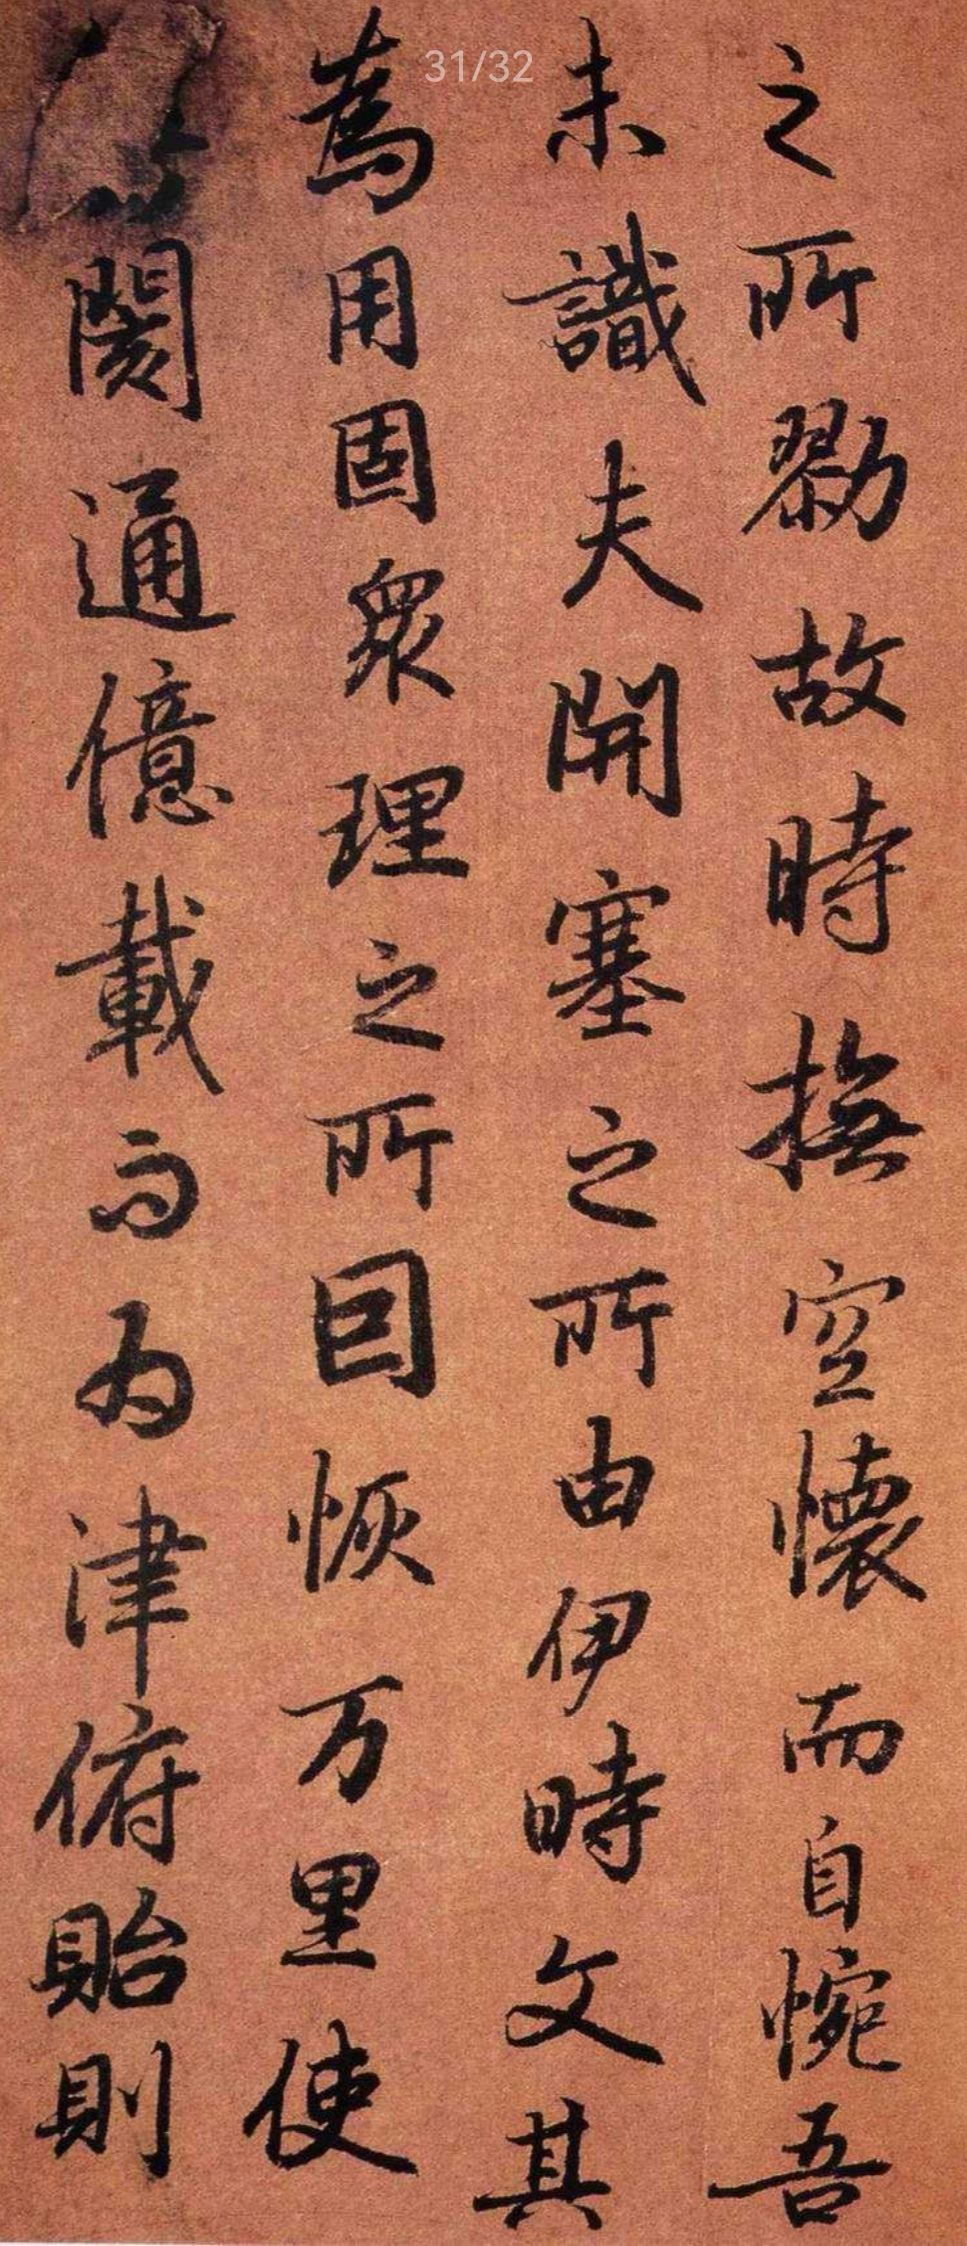 31/32
之所勠故時撫空懷而自惋吾
未識夫開塞之所由伊時文其
為用固眾理之所囙恢万里使
閡通億載而為津俯貽則